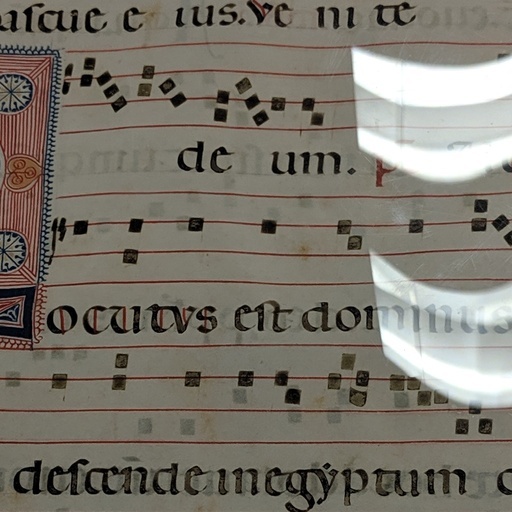 pascue eius. Venite
deum.
Locutus est dominus
descende in egyptum